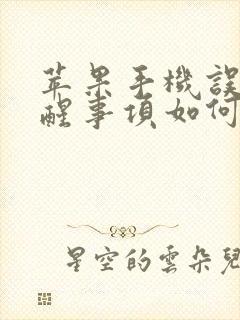 苹果手機誤
醒事項如何
星空的雲朵兒